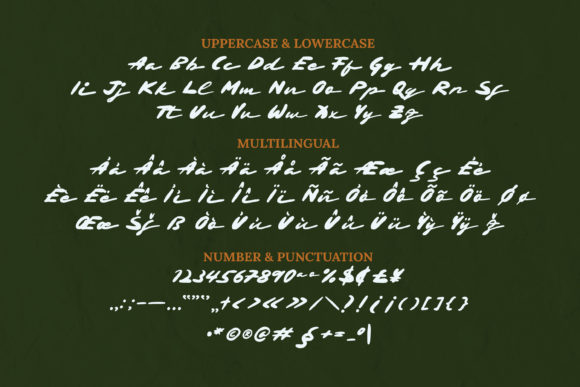 UPPERCASE & LOWERCASE
Aa Bb Cc Dd Ee Ff Gg Hh
Ii Jj Kk Ll Mm Nn Oo Pp Qq Rr Ss
Tt Uu Vv Ww Xx Yy Zz
MULTILINGUAL
Áá Ââ Àà Ää Åå Ãã Ææ Çç Éé
Èè Ëë Êê Íí Ìì Îî Ïï Ññ Óó Ôô Õõ Öö Øø
Œœ Šš ß Òò Úú Ùù Ûû Üü Ýý Ÿÿ Žž
NUMBER & PUNCTUATION
1234567890ªº%$¢£¥
.,:;-–—...“”‘’‚„+<>«»/\?!¿¡()[]{}
·*©®@#§+=_°|